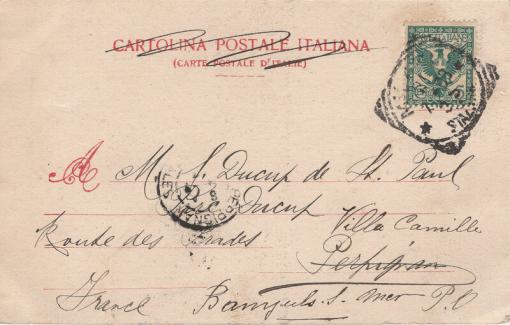 CARTOLINA POSTALE ITALIANA
(CARTE POSTALE D'ITALIE)
A M. S. Ducup de St. Paul
Ducup Villa Camille
Route des Perpignan
France Banyuls. s. Mer P. O
PERPIGNAN